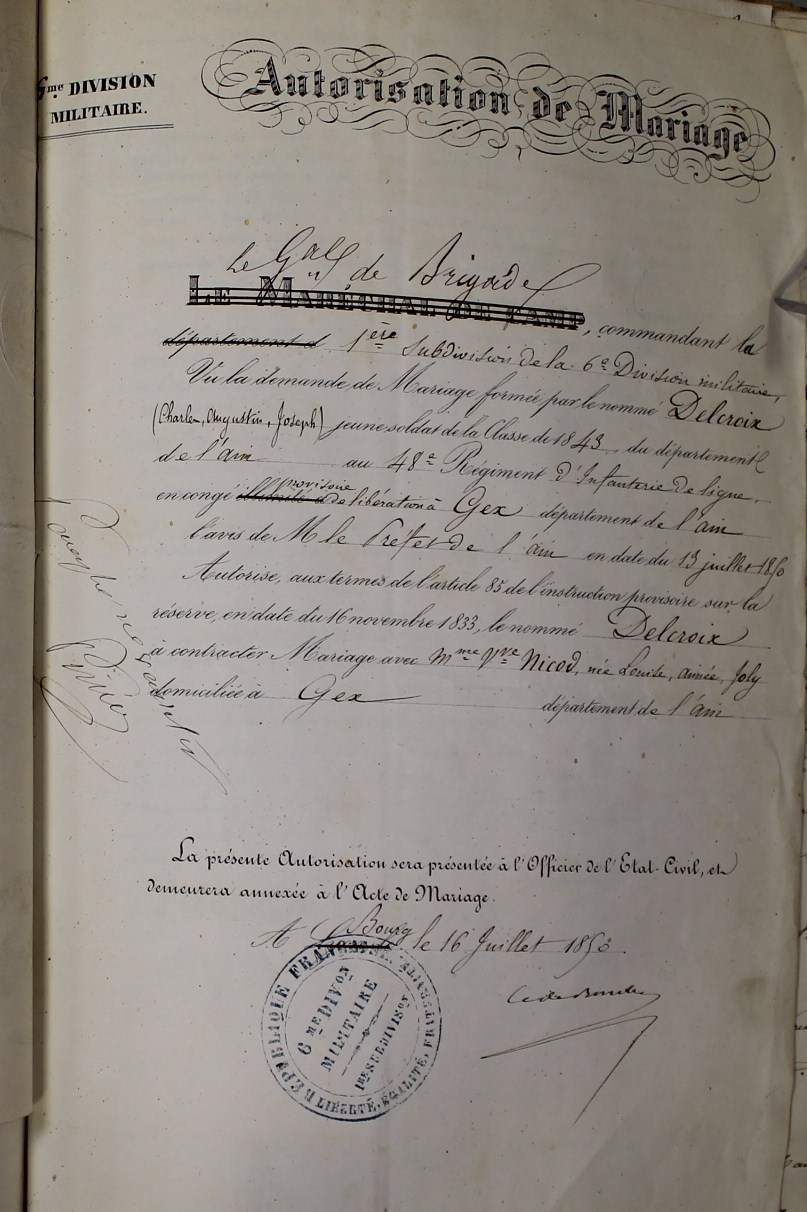 6me DIVISION
MILITAIRE.
Autorisation de Mariage
Le Gal de Brigade
LE MARÉCHAL DE CAMP, commandant la
département d 1ère subdivision de la 6e Division militaire,
Vu la demande de Mariage formée par le nommé Delcroix
(Charles, Augustin, Joseph) jeune soldat de la Classe de 1843, du département
de l'ain au 48e Régiment d'Infanterie de ligne,
provisoire
en congé illimité de libération à Gex département de l'ain
l'avis de M le Préfet de l'ain en date du 13 juillet 1850
Autorise, aux termes de l'article 85 de l'instruction provisoire sur la
réserve, en date du 16 novembre 1833, le nommé Delcroix
à contracter Mariage avec Mme Vve Nicod, née Louise, aimée, Joly
domiciliée à Gex département de l'ain
La présente Autorisation sera présentée à l'Officier de l'Etat-Civil, et
demeurera annexée à l'Acte de Mariage.
A Bourg le 16 Juillet 1850
RÉPUBLIQUE FRANÇAISE. LIBERTÉ, ÉGALITÉ, FRATERNITÉ
6ME DIVON
MILITAIRE
1RE SUBDIVISON